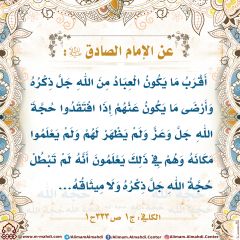 عن الإمام الصادق :
أَقْرَبُ مَا يَكُونُ الْعِبَادُ مِنَ اللَّهِ جَلَّ ذِكْرُهُ
وَأَرْضَى مَا يَكُونُ عَنْهُمْ إِذَا افْتَقَدُوا حُجَّةَ
اللَّهِ جَلَّ وَعَزَّ وَلَمْ يَظْهَرْ لَهُمْ وَلَمْ يَعْلَمُوا
مَكَانَهُ وَهُمْ فِي ذَلِكَ يَعْلَمُونَ أَنَّهُ لَمْ تَبْطُلْ
حُجَّةُ اللَّهِ جَلَّ ذِكْرُهُ وَلَا مِيثَاقُهُ...
الكافي: ج١ ص٣٣٣ ح١
www.m-mahdi.com Alimam.Almahdi Alimam.Almahdi.Center Alimam.Almahdi.Center